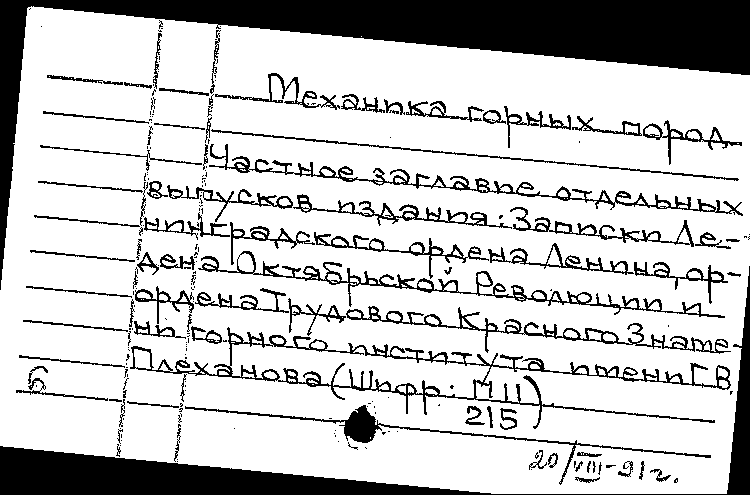 Механика горных пород
Частное заглавие отдельных
выпусков издания: Записки Ле-
нинградского ордена Ленина, ор-
дена Октябрьской Революции и
ордена Трудового Красного Знаме-
ни горного института имени Г.В.
Плеханова (Шифр: П11
215)
б
20/VIII-91г.